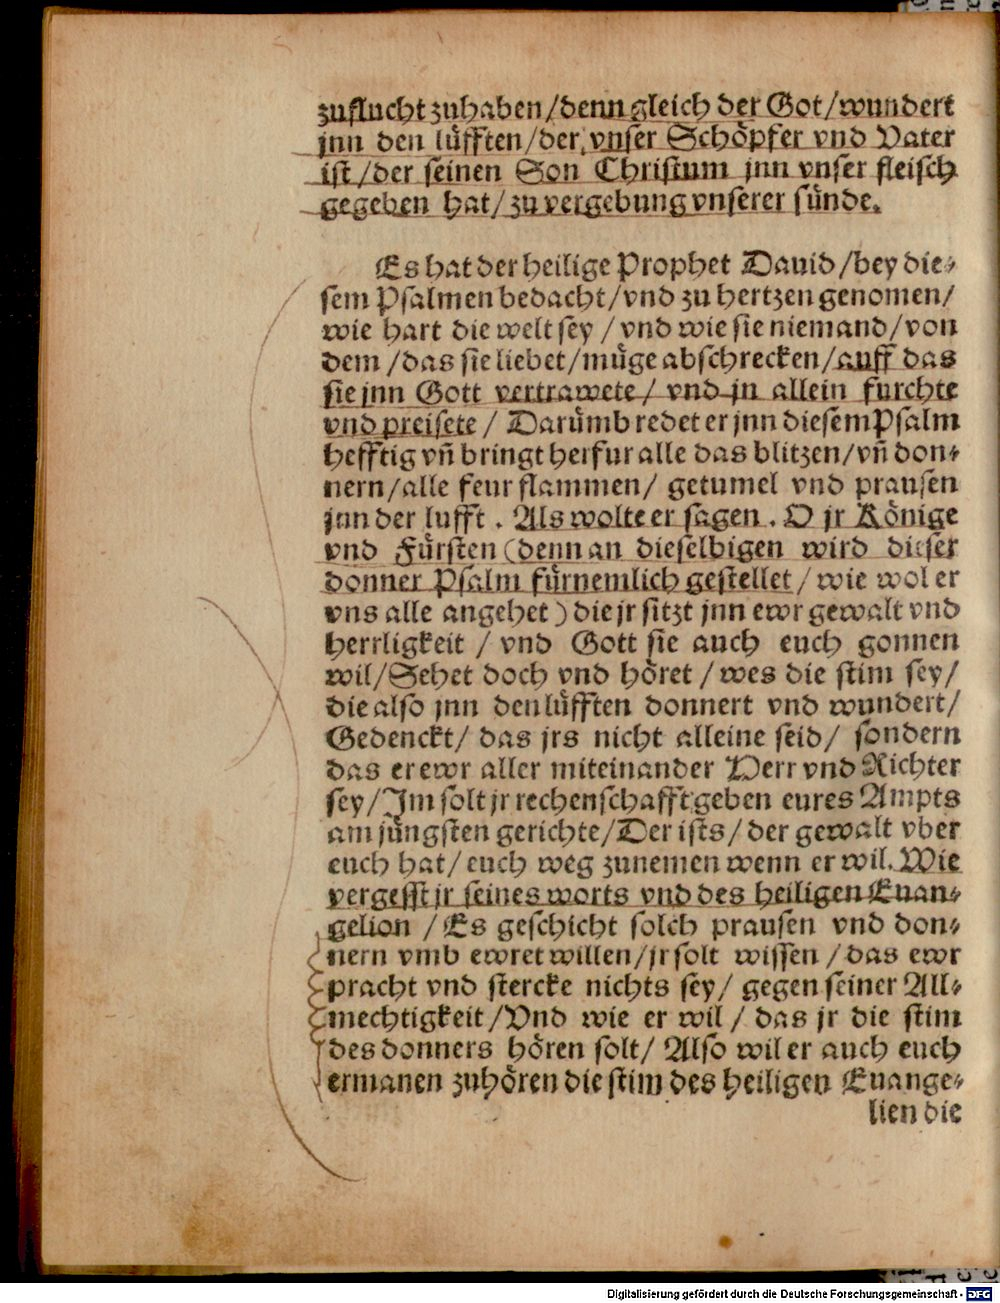 zuflucht zuhaben/denn gleich der Got/wundert
jnn den lüfften/der vnser Schöpfer vnd Vater
ist/der seinen Son Christum jnn vnser fleisch
gegeben hat/zu vergebung vnserer sünde.
Es hat der heilige Prophet Dauid/bey die-
sem Psalmen bedacht/vnd zu hertzen genomen/
wie hart die welt sey/vnd wie sie niemand/von
dem/das sie liebet/müge abschrecken/auff das
sie jnn Gott vertrawete/vnd jn allein furchte
vnd preisete/Darümb redet er jnn diesem Psalm
hefftig vn̄ bringt herfur alle das blitzen/vn̄ don-
nern/alle feur flammen/getumel vnd prausen
jnn der lufft. Als wolte er sagen. O jr Könige
vnd Fürsten (denn an dieselbigen wird dieser
donner Psalm fürnemlich gestellet/wie wol er
vns alle angehet) die jr sitzt jnn ewr gewalt vnd
herrligkeit/vnd Gott sie auch euch gonnen
wil/Sehet doch vnd höret/wes die stim sey/
die also jnn den lüfften donnert vnd wundert/
Gedenckt/das jrs nicht alleine seid/sondern
das er ewr aller miteinander Herr vnd Richter
sey/Im solt jr rechenschafft geben eures Ampts
am jüngsten gerichte/Der ists/der gewalt vber
euch hat/euch weg zunemen wenn er wil. Wie
vergesst jr seines worts vnd des heiligen Euan-
gelion/Es geschicht solch prausen vnd don-
nern vmb ewret willen/jr solt wissen/das ewr
pracht vnd stercke nichts sey/gegen seiner All-
mechtigkeit/Vnd wie er wil/das jr die stim
des donners hören solt/Also wil er auch euch
ermanen zuhören die stim des heiligen Euange-
lien die
Digitalisierung gefördert durch die Deutsche Forschungsgemeinschaft - DFG